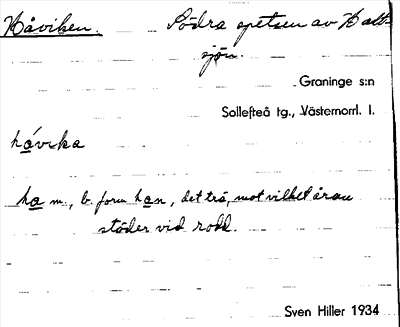 Håviken. Södra spetsen av Hall-
sjön.
Graninge s:n
Sollefteå tg., Västernorrl. l.
hávika
ha m., b. form han, det trä, mot vilket åran
stöder vid rodd.
Sven Hiller 1934